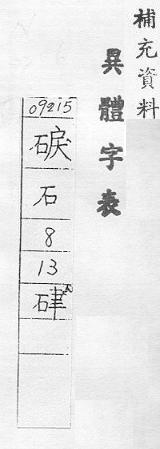 補充資料
異體字表
09215
石
8
13
硉